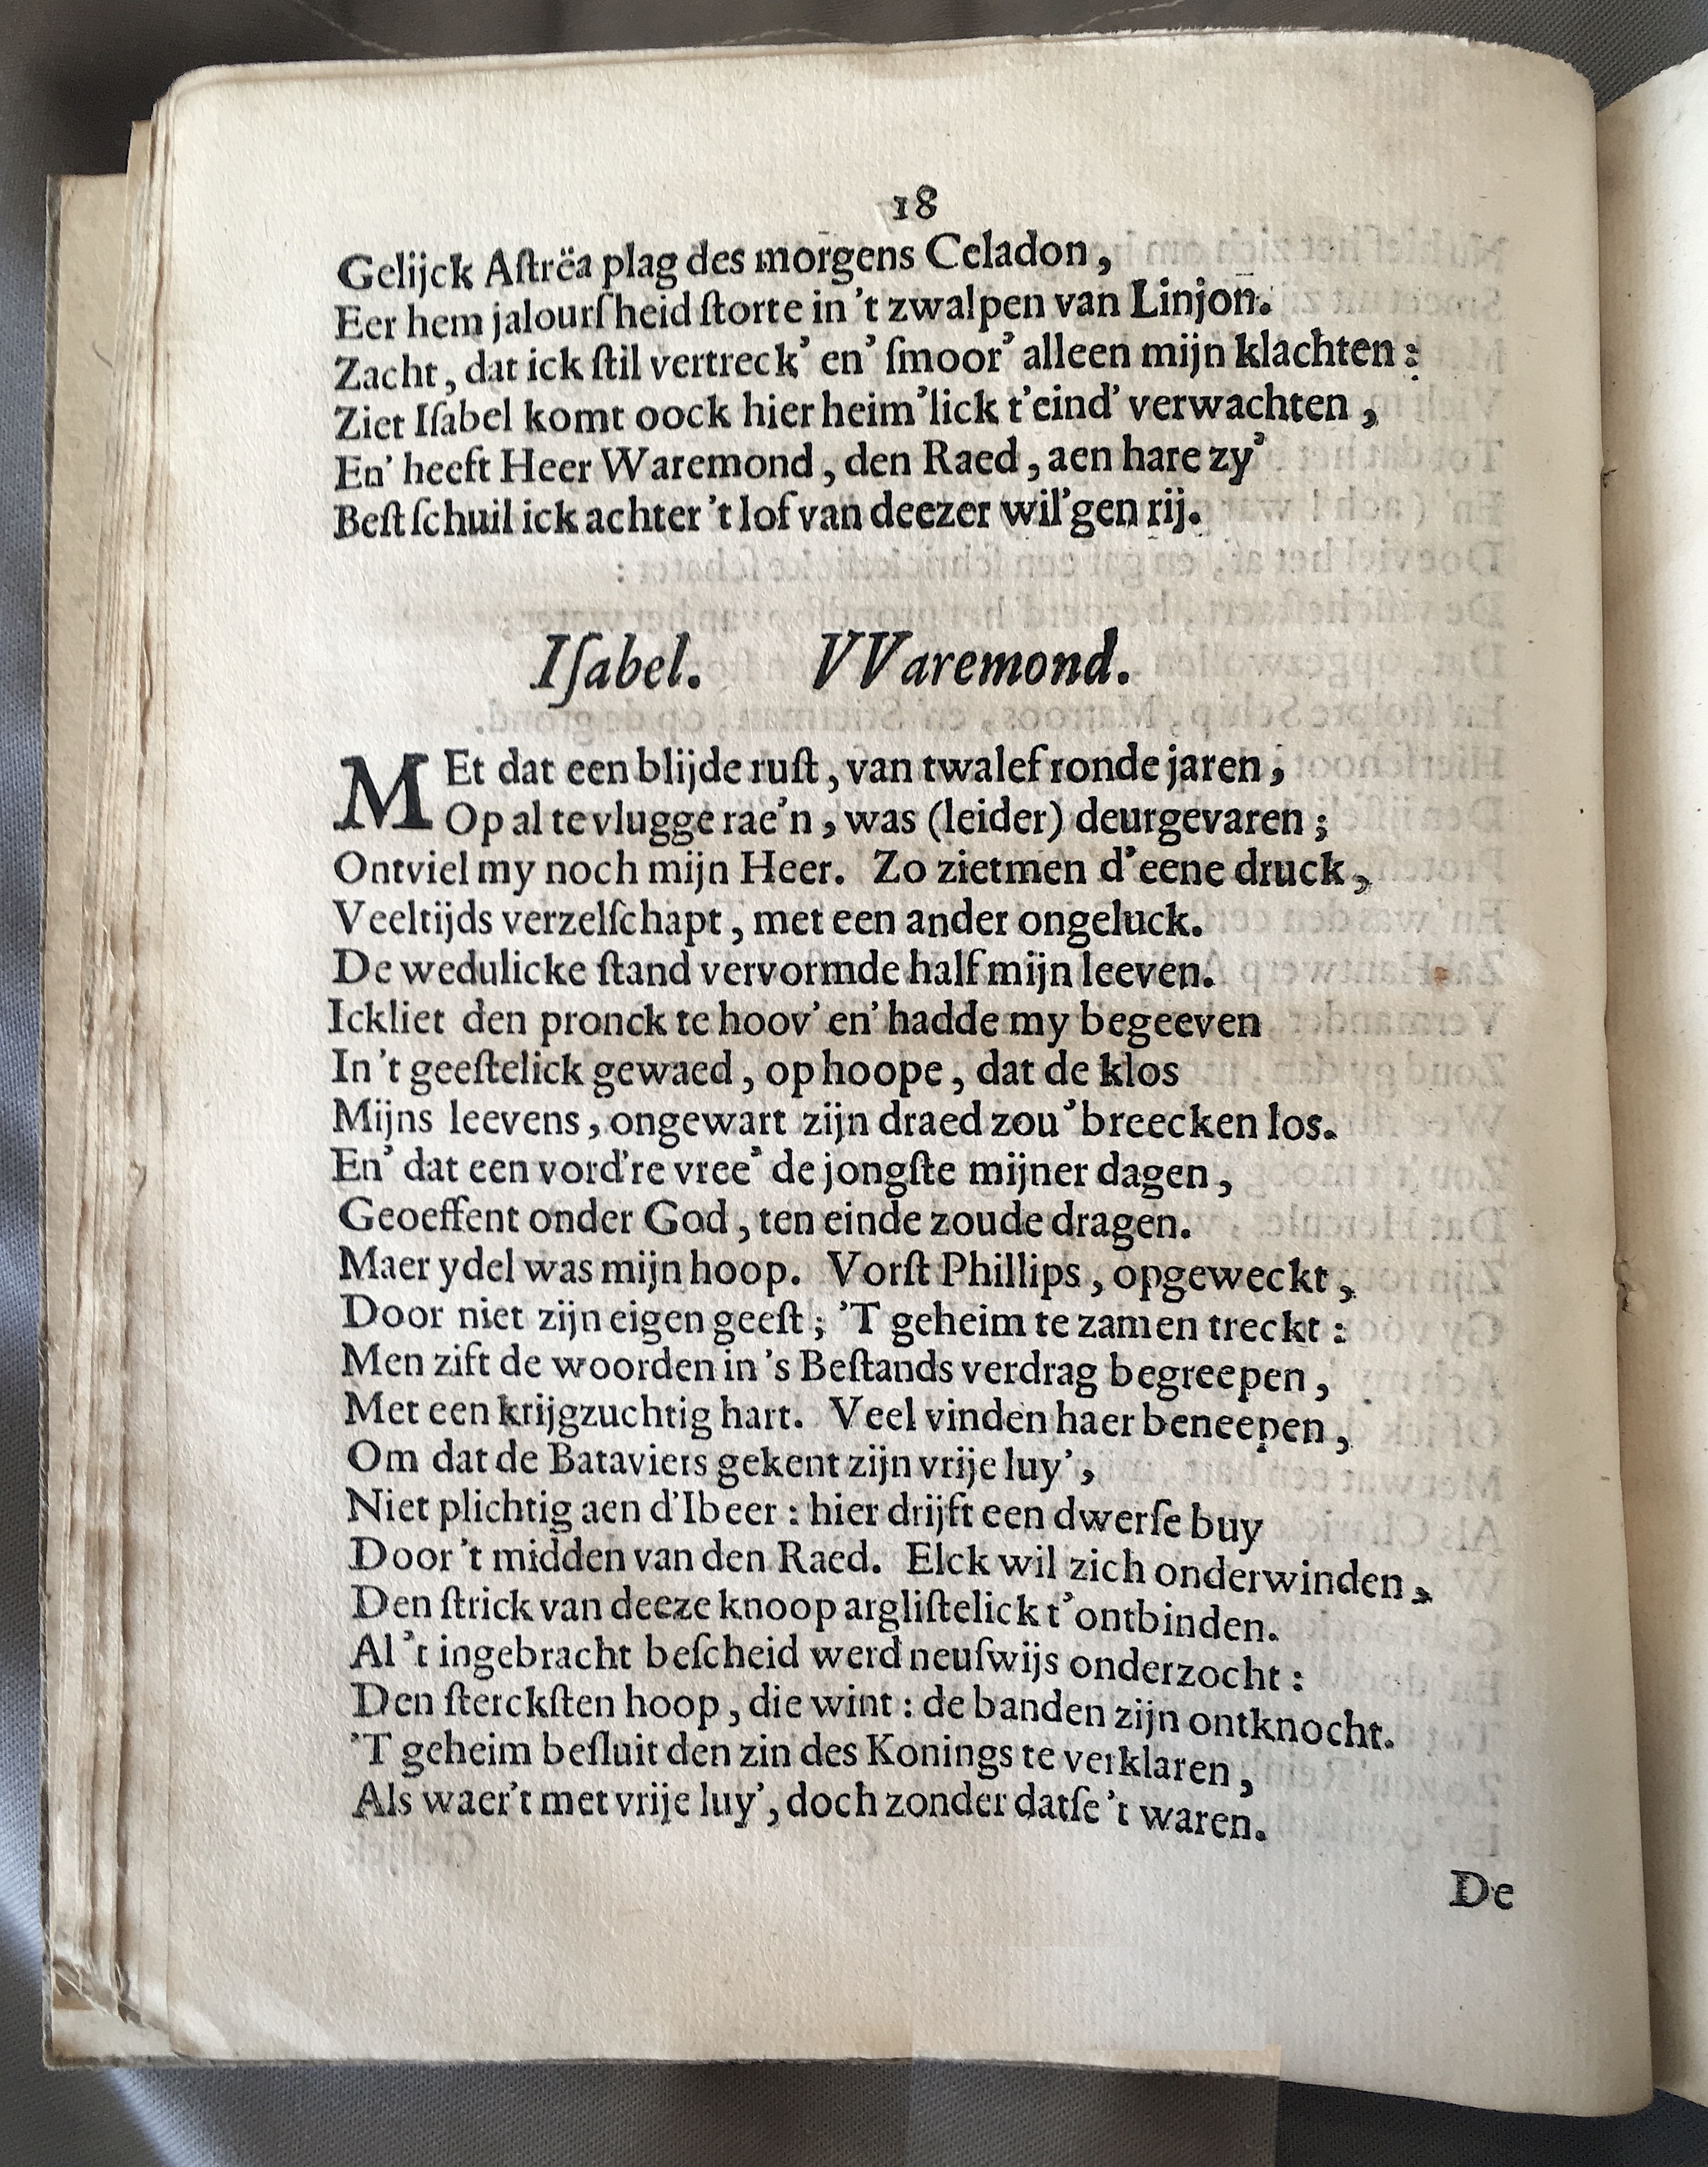 18
Gelijck Aſtrëa plag des morgens Celadon,
Eer hem jalourſheid ſtorte in 't zwalpen van Linjon.
Zacht, dat ick ſtil vertreck' en' ſmoor' alleen mijn klachten:
Ziet Iſabel komt oock hier heim'lick t'eind' verwachten,
En' heeft Heer Waremond, den Raed, aen hare zy'
Beſt ſchuil ick achter 't lof van deezer wil'gen rij.
Iſabel. VVaremond.
MEt dat een blijde ruſt, van twalef ronde jaren,
Op al te vlugge rae'n, was (leider) deurgevaren;
Ontviel my noch mijn Heer. Zo zietmen d'eene druck,
Veeltijds verzelſchapt, met een ander ongeluck.
De wedulicke ſtand vervormde half mijn leeven.
Ickliet den pronck te hoov' en' hadde my begeeven
In 't geeſtelick gewaed, op hoope, dat de klos
Mijns leevens, ongewart zijn draed zou' breecken los.
En' dat een vord're vree' de jongſte mijner dagen,
Geoeffent onder God, ten einde zoude dragen.
Maer ydel was mijn hoop. Vorſt Phillips, opgeweckt,
Door niet zijn eigen geeſt; 'T geheim te zamen treckt:
Men zift de woorden in 's Beſtands verdrag begreepen,
Met een krijgzuchtig hart. Veel vinden haer beneepen,
Om dat de Bataviers gekent zijn vrije luy',
Niet plichtig aen d'Ibeer: hier drijft een dwerſe buy
Door 't midden van den Raed. Elck wil zich onderwinden,
Den ſtrick van deeze knoop argliſtelick t'ontbinden.
Al 't ingebracht beſcheid werd neuſwijs onderzocht:
Den ſterckſten hoop, die wint: de banden zijn ontknocht.
'T geheim beſluit den zin des Konings te verklaren,
Als waer't met vrije luy', doch zonder datſe 't waren.
De